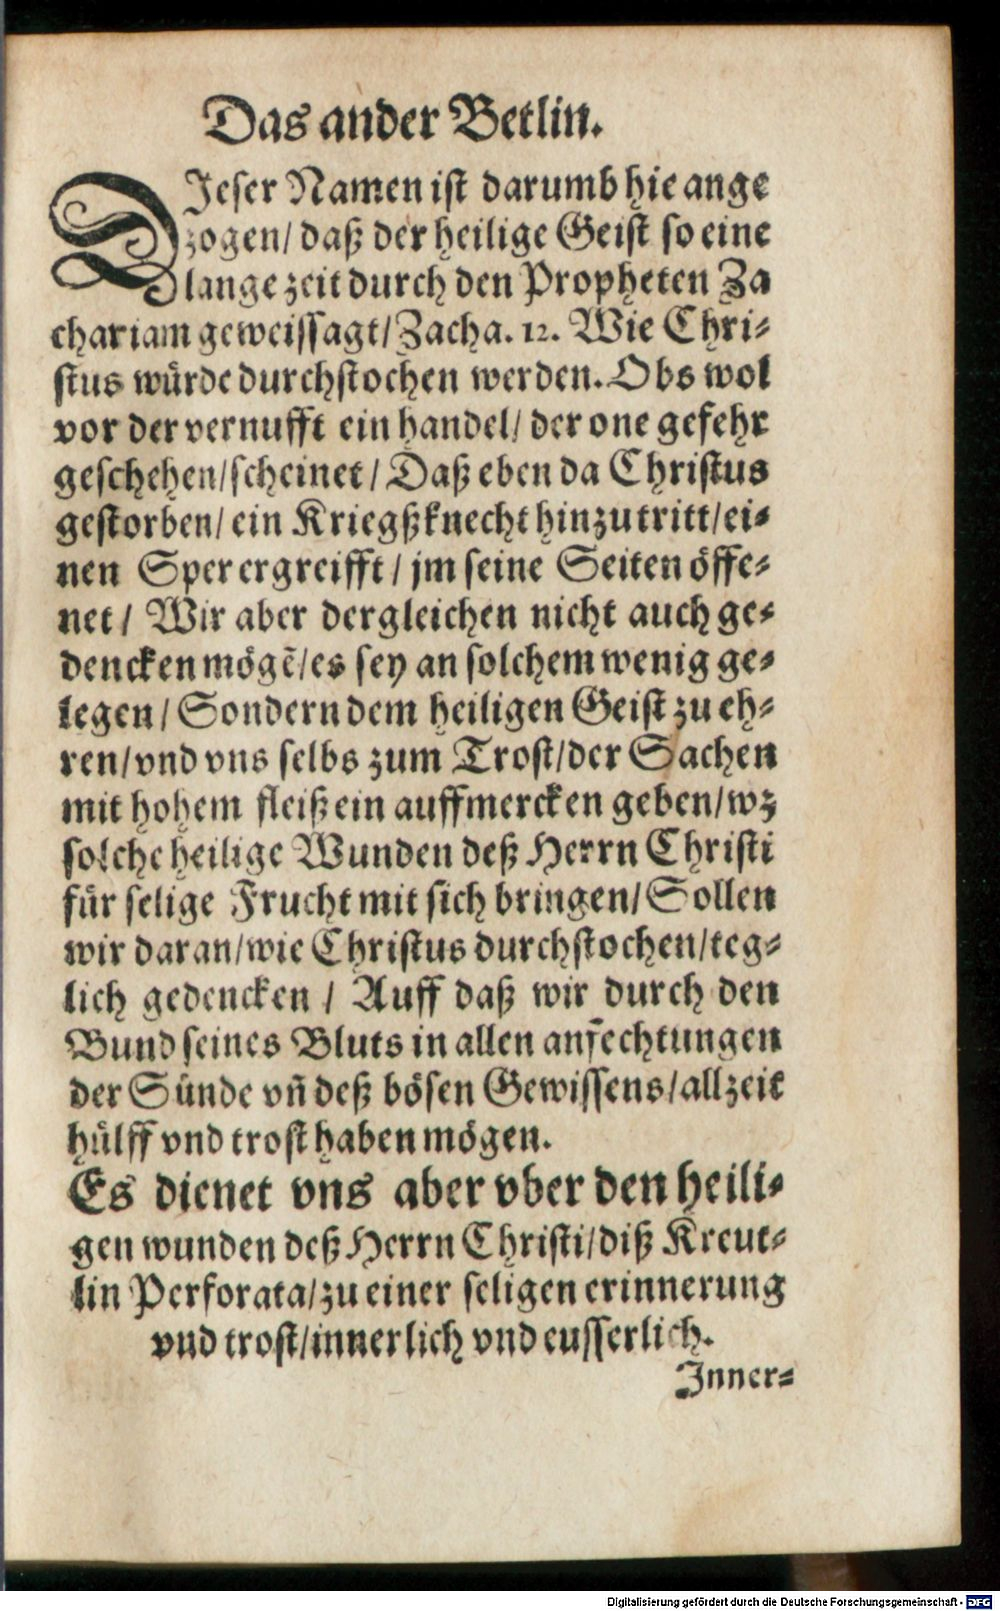 Das ander Betlin.
DJeser Namen ist darumb hie ange
zogen/ daß der heilige Geist so eine
lange zeit durch den Propheten Za
chariam geweissagt/ Zacha. 12. Wie Chri-
stus würde durchstochen werden. Obs wol
vor der vernufft ein handel/ der one gefehr
geschehen/ scheinet/ Daß eben da Christus
gestorben/ ein Kriegßknecht hinzu tritt/ ei-
nen Sper ergreifft/ jm seine Seiten öffe-
net/ Wir aber dergleichen nicht auch ge-
dencken mögẽ/ es sey an solchem wenig ge-
legen/ Sondern dem heiligen Geist zu eh-
ren/ vnd vns selbs zum Trost/ der Sachen
mit hohem fleiß ein auffmercken geben/ wz
solche heilige Wunden deß Herrn Christi
für selige Frucht mit sich bringen/ Sollen
wir daran/ wie Christus durchstochen/ teg-
lich gedencken/ Auff daß wir durch den
Bund seines Bluts in allen anfechtungen
der Sünde vñ deß bösen Gewissens/ allzeit
hülff vnd trost haben mögen.
Es dienet vns aber vber den heili-
gen wunden deß Herrn Christi/ diß Kreut-
lin Perforata/ zu einer seligen erinnerung
vnd trost/ innerlich vnd eusserlich.
Inner-
Digitalisierung gefördert durch die Deutsche Forschungsgemeinschaft - DFG